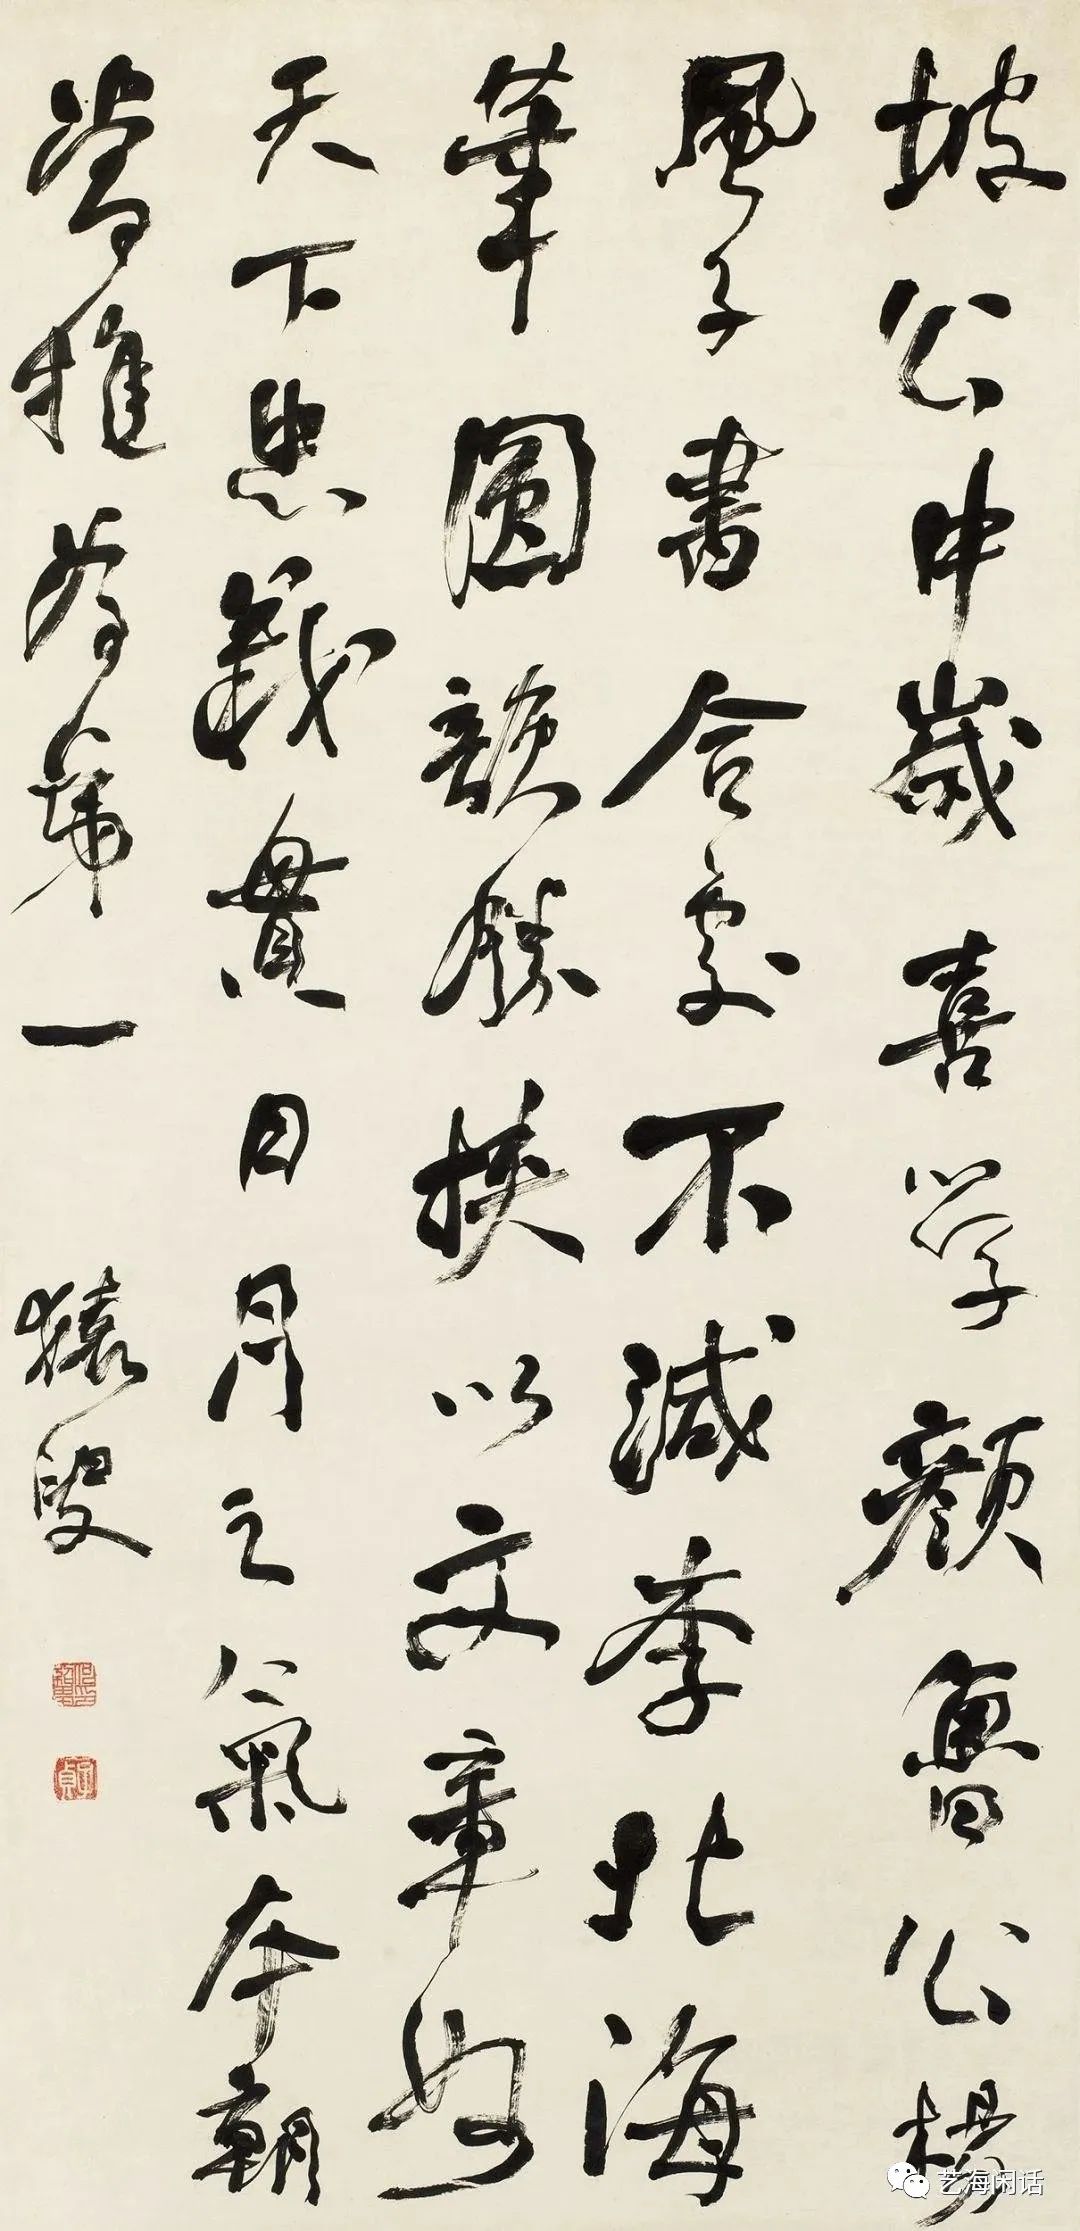 坡公中歲喜學顏魯公楊
風子書合處不減李北海
筆圓韻勝挾以文章妙
天下忠義貫日月之氣本朝
當推為第一 猿叟
子貞
艺海闲话